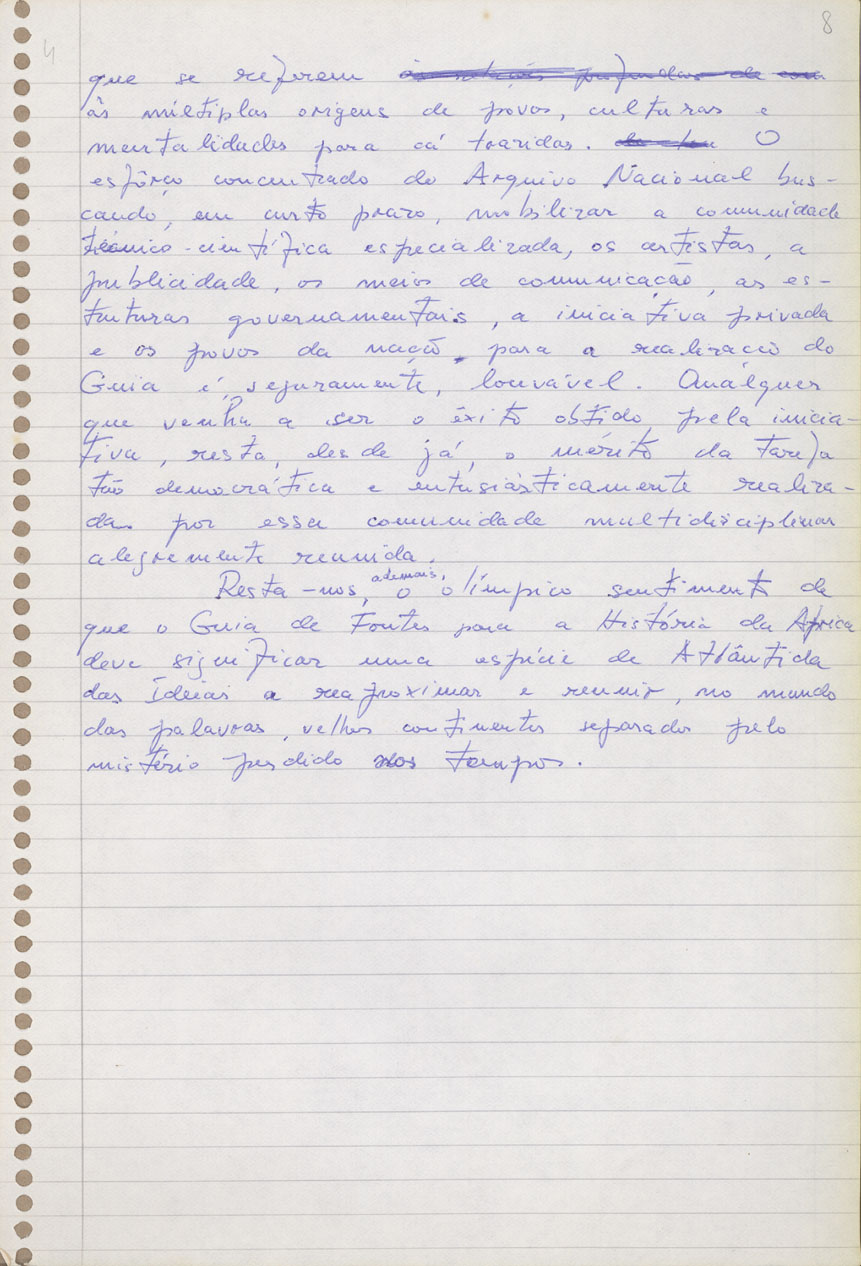 8
4
que se referem às relações profundas de
às múltiplas origens de povos, culturas e
mentalidades para cá trazidas. O
esfôrço concentrado do Arquivo Nacional bus-
cando, em curto prazo, mobilizar a comunidade
técnico-científica especializada, os artistas, a
publicidade, os meios de comunicação, as es-
truturas governamentais, a iniciativa privada
e os povos da nação, para a realização do
Guia é, seguramente, louvável. Qualquer
que venha a ser o êxito obtido pela inicia-
tiva, resta, desde já, o mérito da tarefa
tão democrática e entusiàsticamente realiza-
da por essa comunidade multidisciplinar
alegremente reunida.
Resta-nos, ademais, o olímpico sentimento de
que o Guia de Fontes para a História da África
deve significar uma espécie de Atlântida
das Ideias a reaproximar e reunir, no mundo
das palavras, velhos continentes separados pelo
mistério perdido nos tempos.